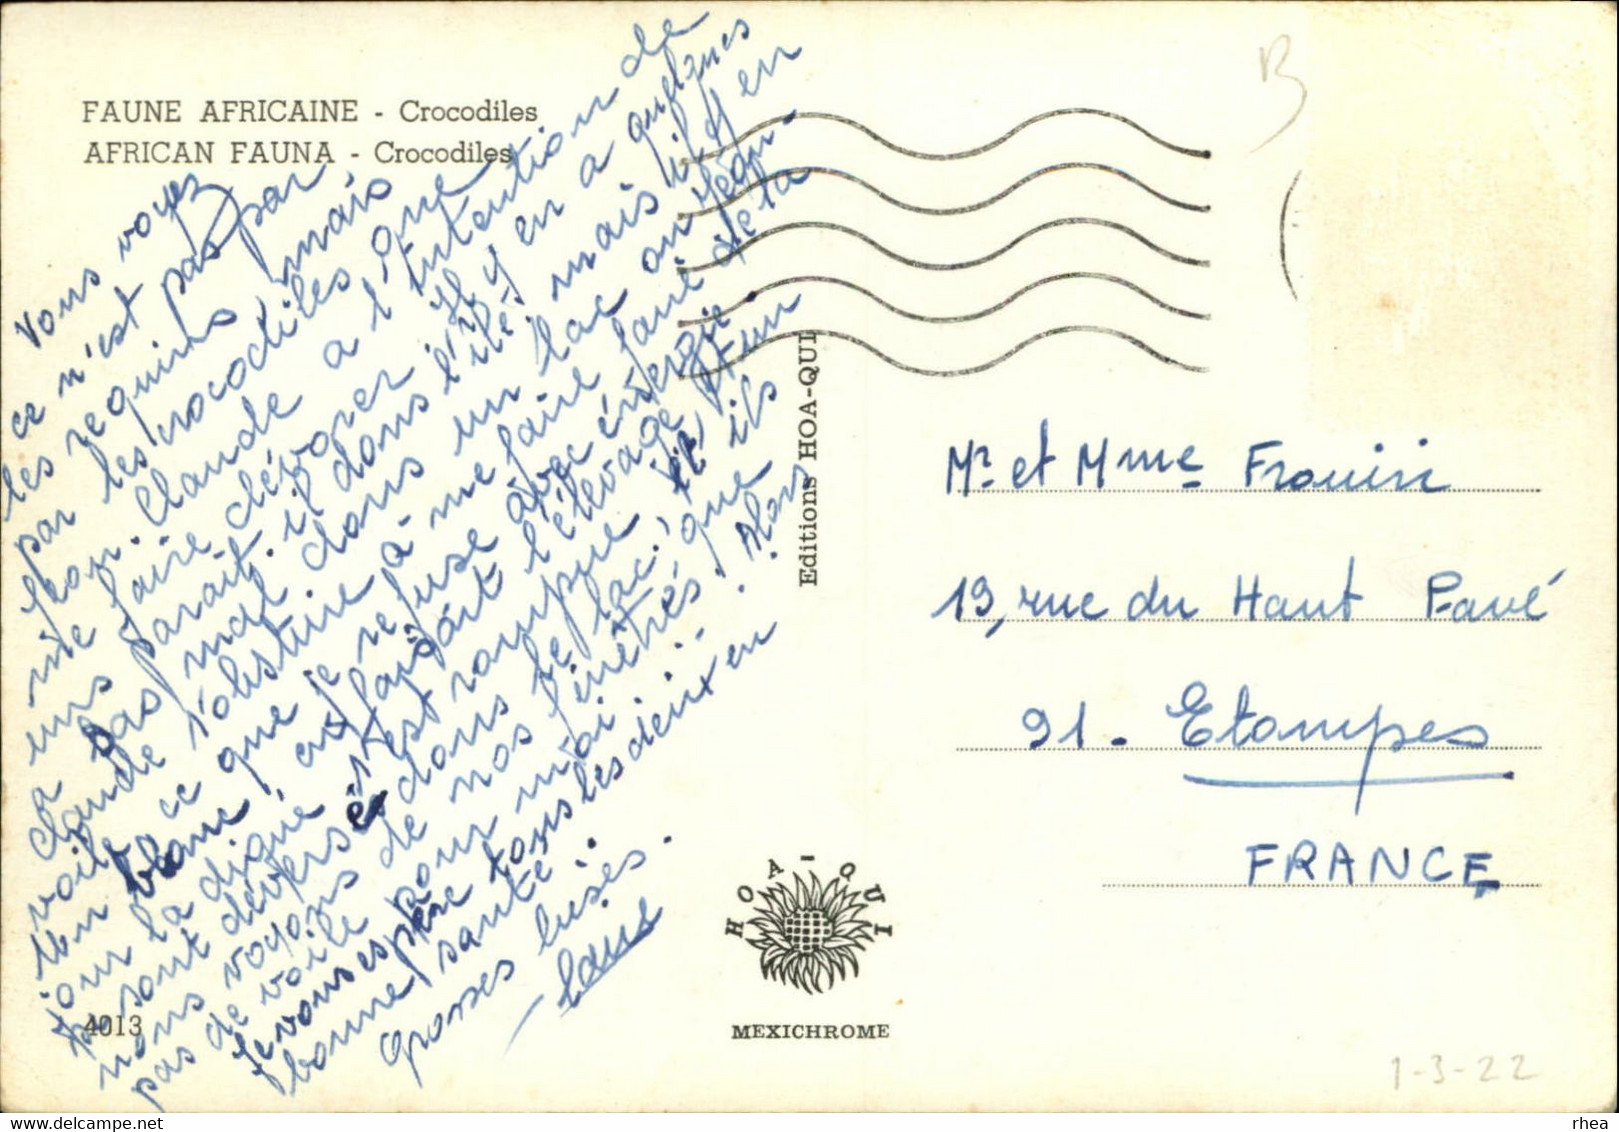 FAUNE AFRICAINE - Crocodiles
AFRICAN FAUNA - Crocodiles
Vous voyez
ce n'est pas par
les requins, mais
par les crocodiles que
Jean-Claude a l'intention de
me faire dévorer. Il y en a quelques
uns parait-il dans l'île. mais il y en
a pas mal dans un lac où Jean-
Claude s'obstine à me faire faire de la
voile ce que je refuse avec énergie
Un blanc, en faisant l'élevage. Et un
jour la digue s'est rompue, et ils
se sont déversés dans le lac. que
nous voyons de nos fenêtres.
pas de voile pour moi ! Alors
Je vous espère tous les deux en
bonne santé.
Grosses bises.
4013
Editions HOA-QUI
HOA-QUI
MEXICHROME
B
Mr et Mme Frouin
19, rue du Haut Pavé
91. Etampes
FRANCE
1-3-22
delcampe.net
rhea